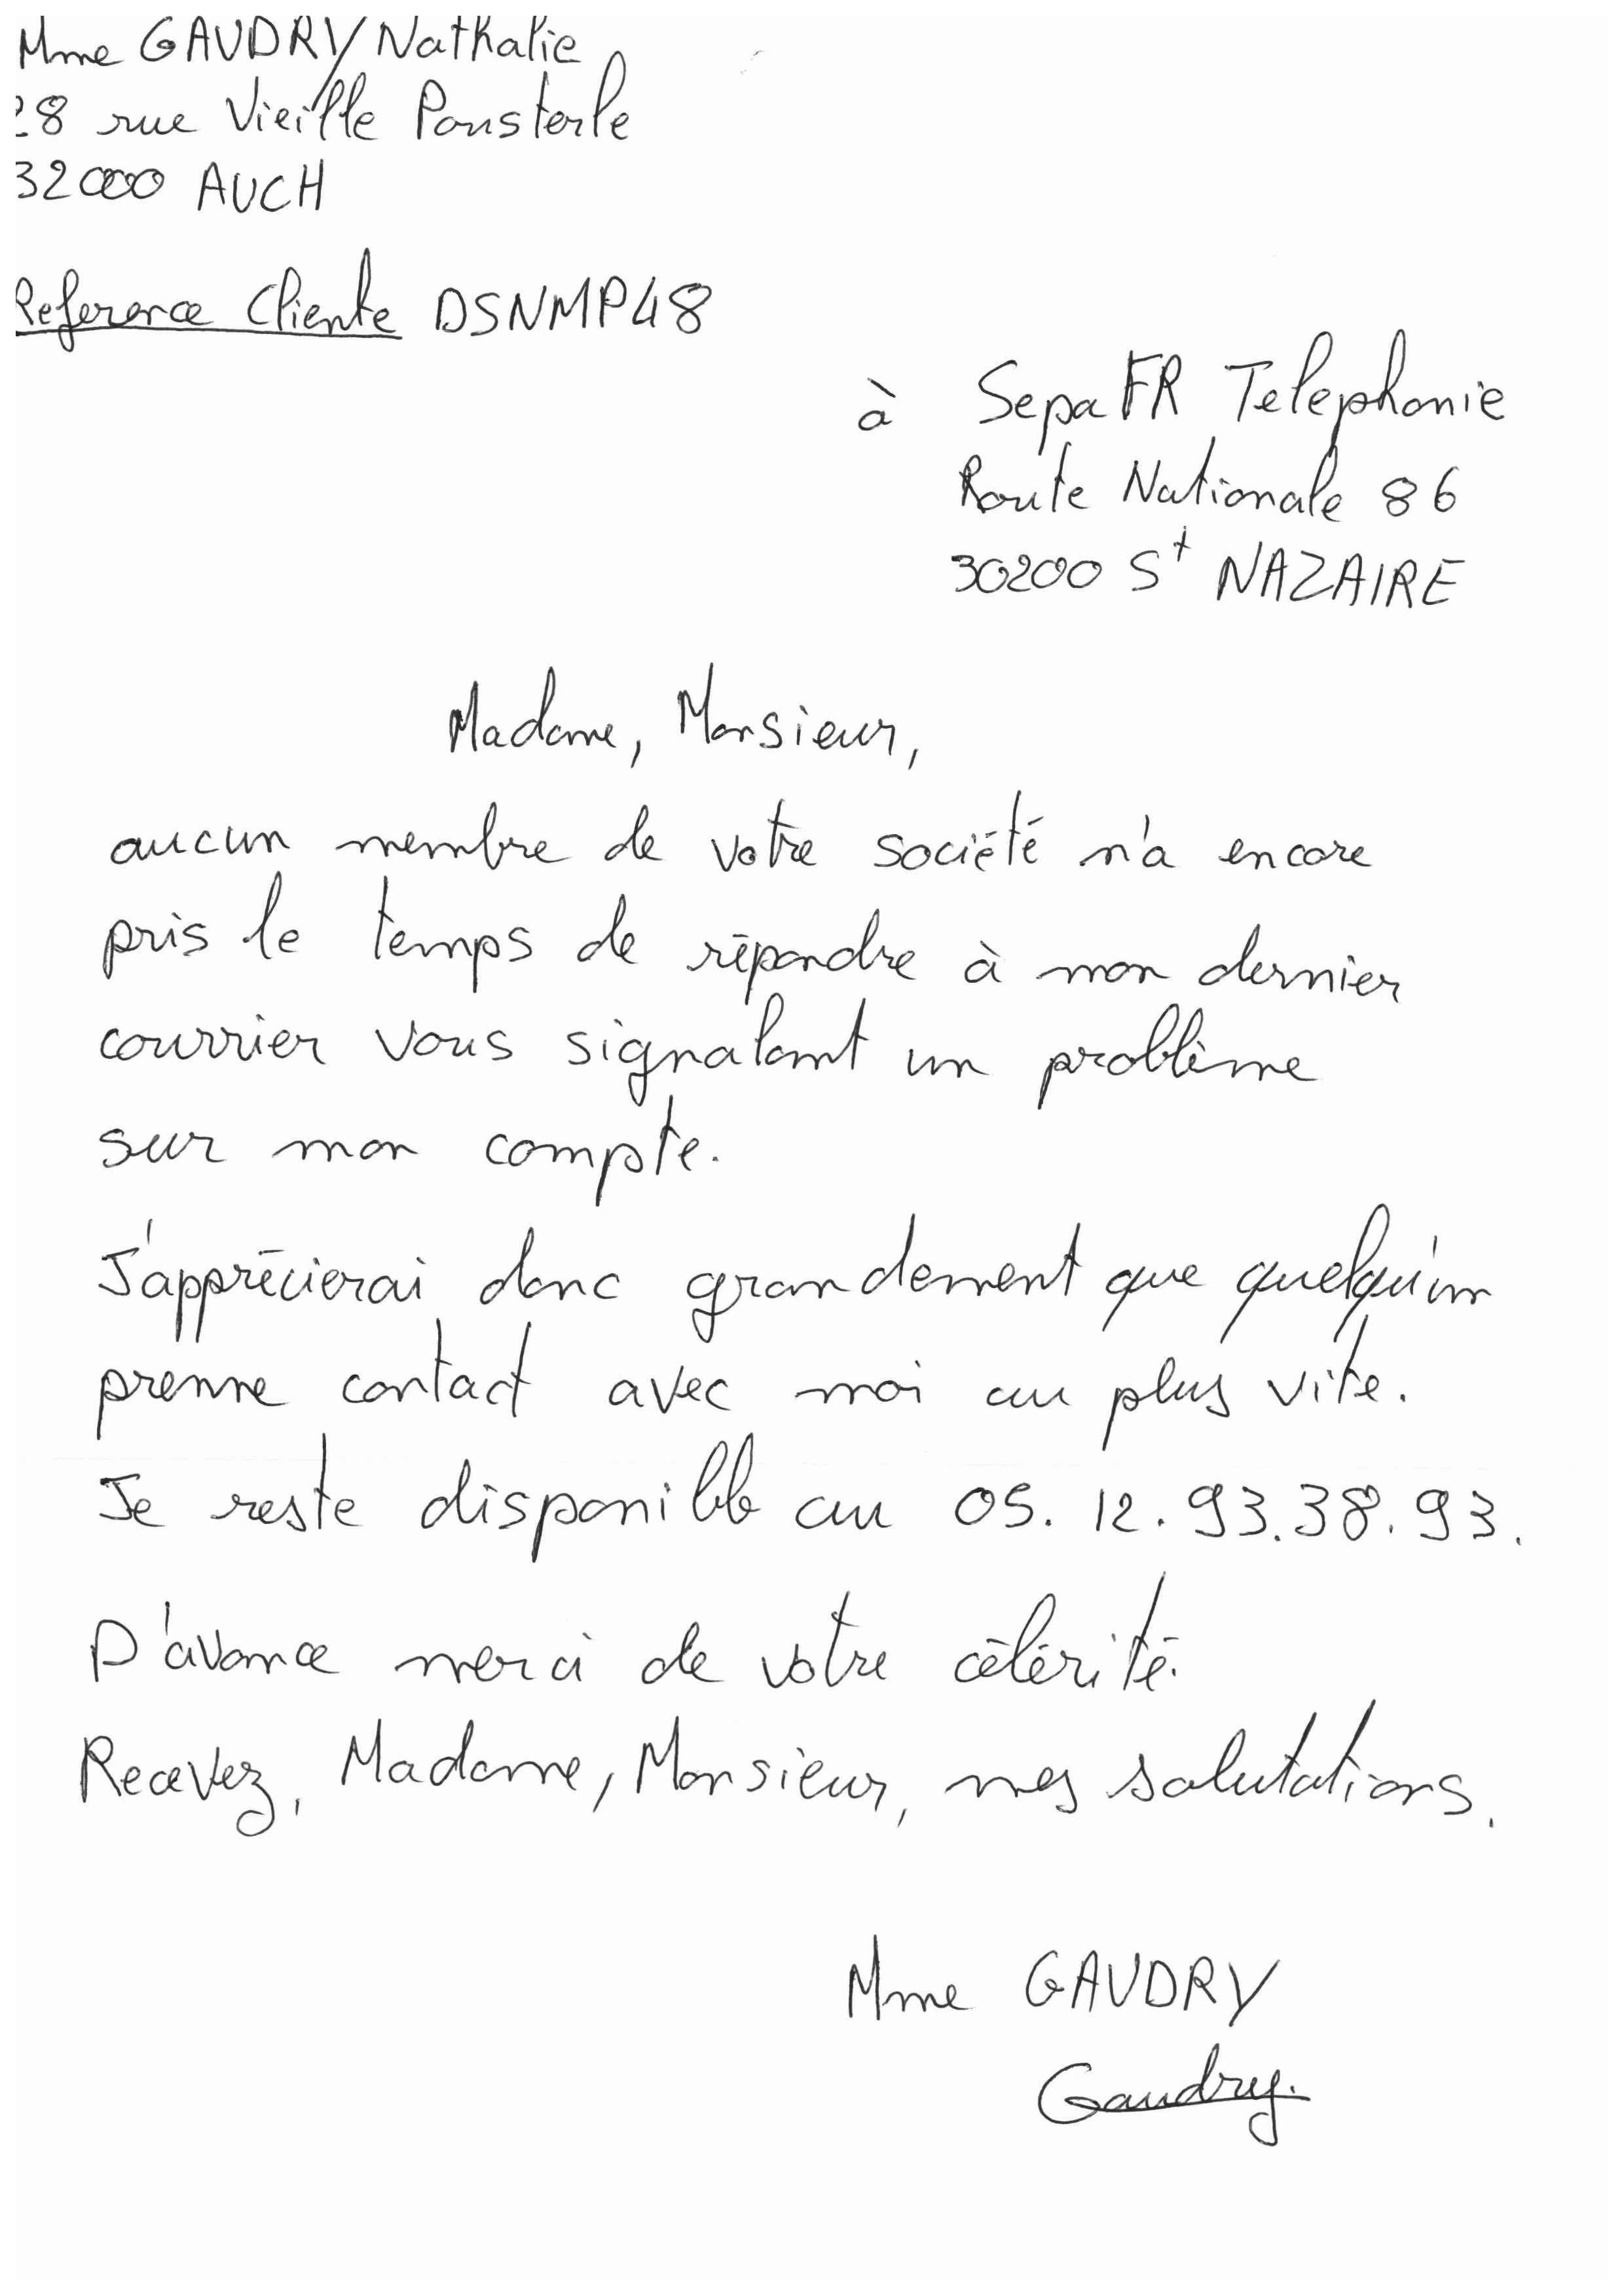 Mme GAUDRY Nathalie
28 rue Vieille Pousterle
32000 AUCH
Reference Cliente DSNMP48
à SepaFR Telephonie
Route Nationale 86
30200 St NAZAIRE
Madame, Monsieur,
aucun membre de votre société n'a encore
pris le temps de répondre à mon dernier
courrier vous signalant un problème
sur mon compte.
J'apprécierai donc grandement que quelqu'un
prenne contact avec moi au plus vite.
Je reste disponible au 05.12.93.38.93.
D'avance merci de votre célérité.
Recevez, Madame, Monsieur, mes salutations.
Mme GAUDRY
Gaudry.